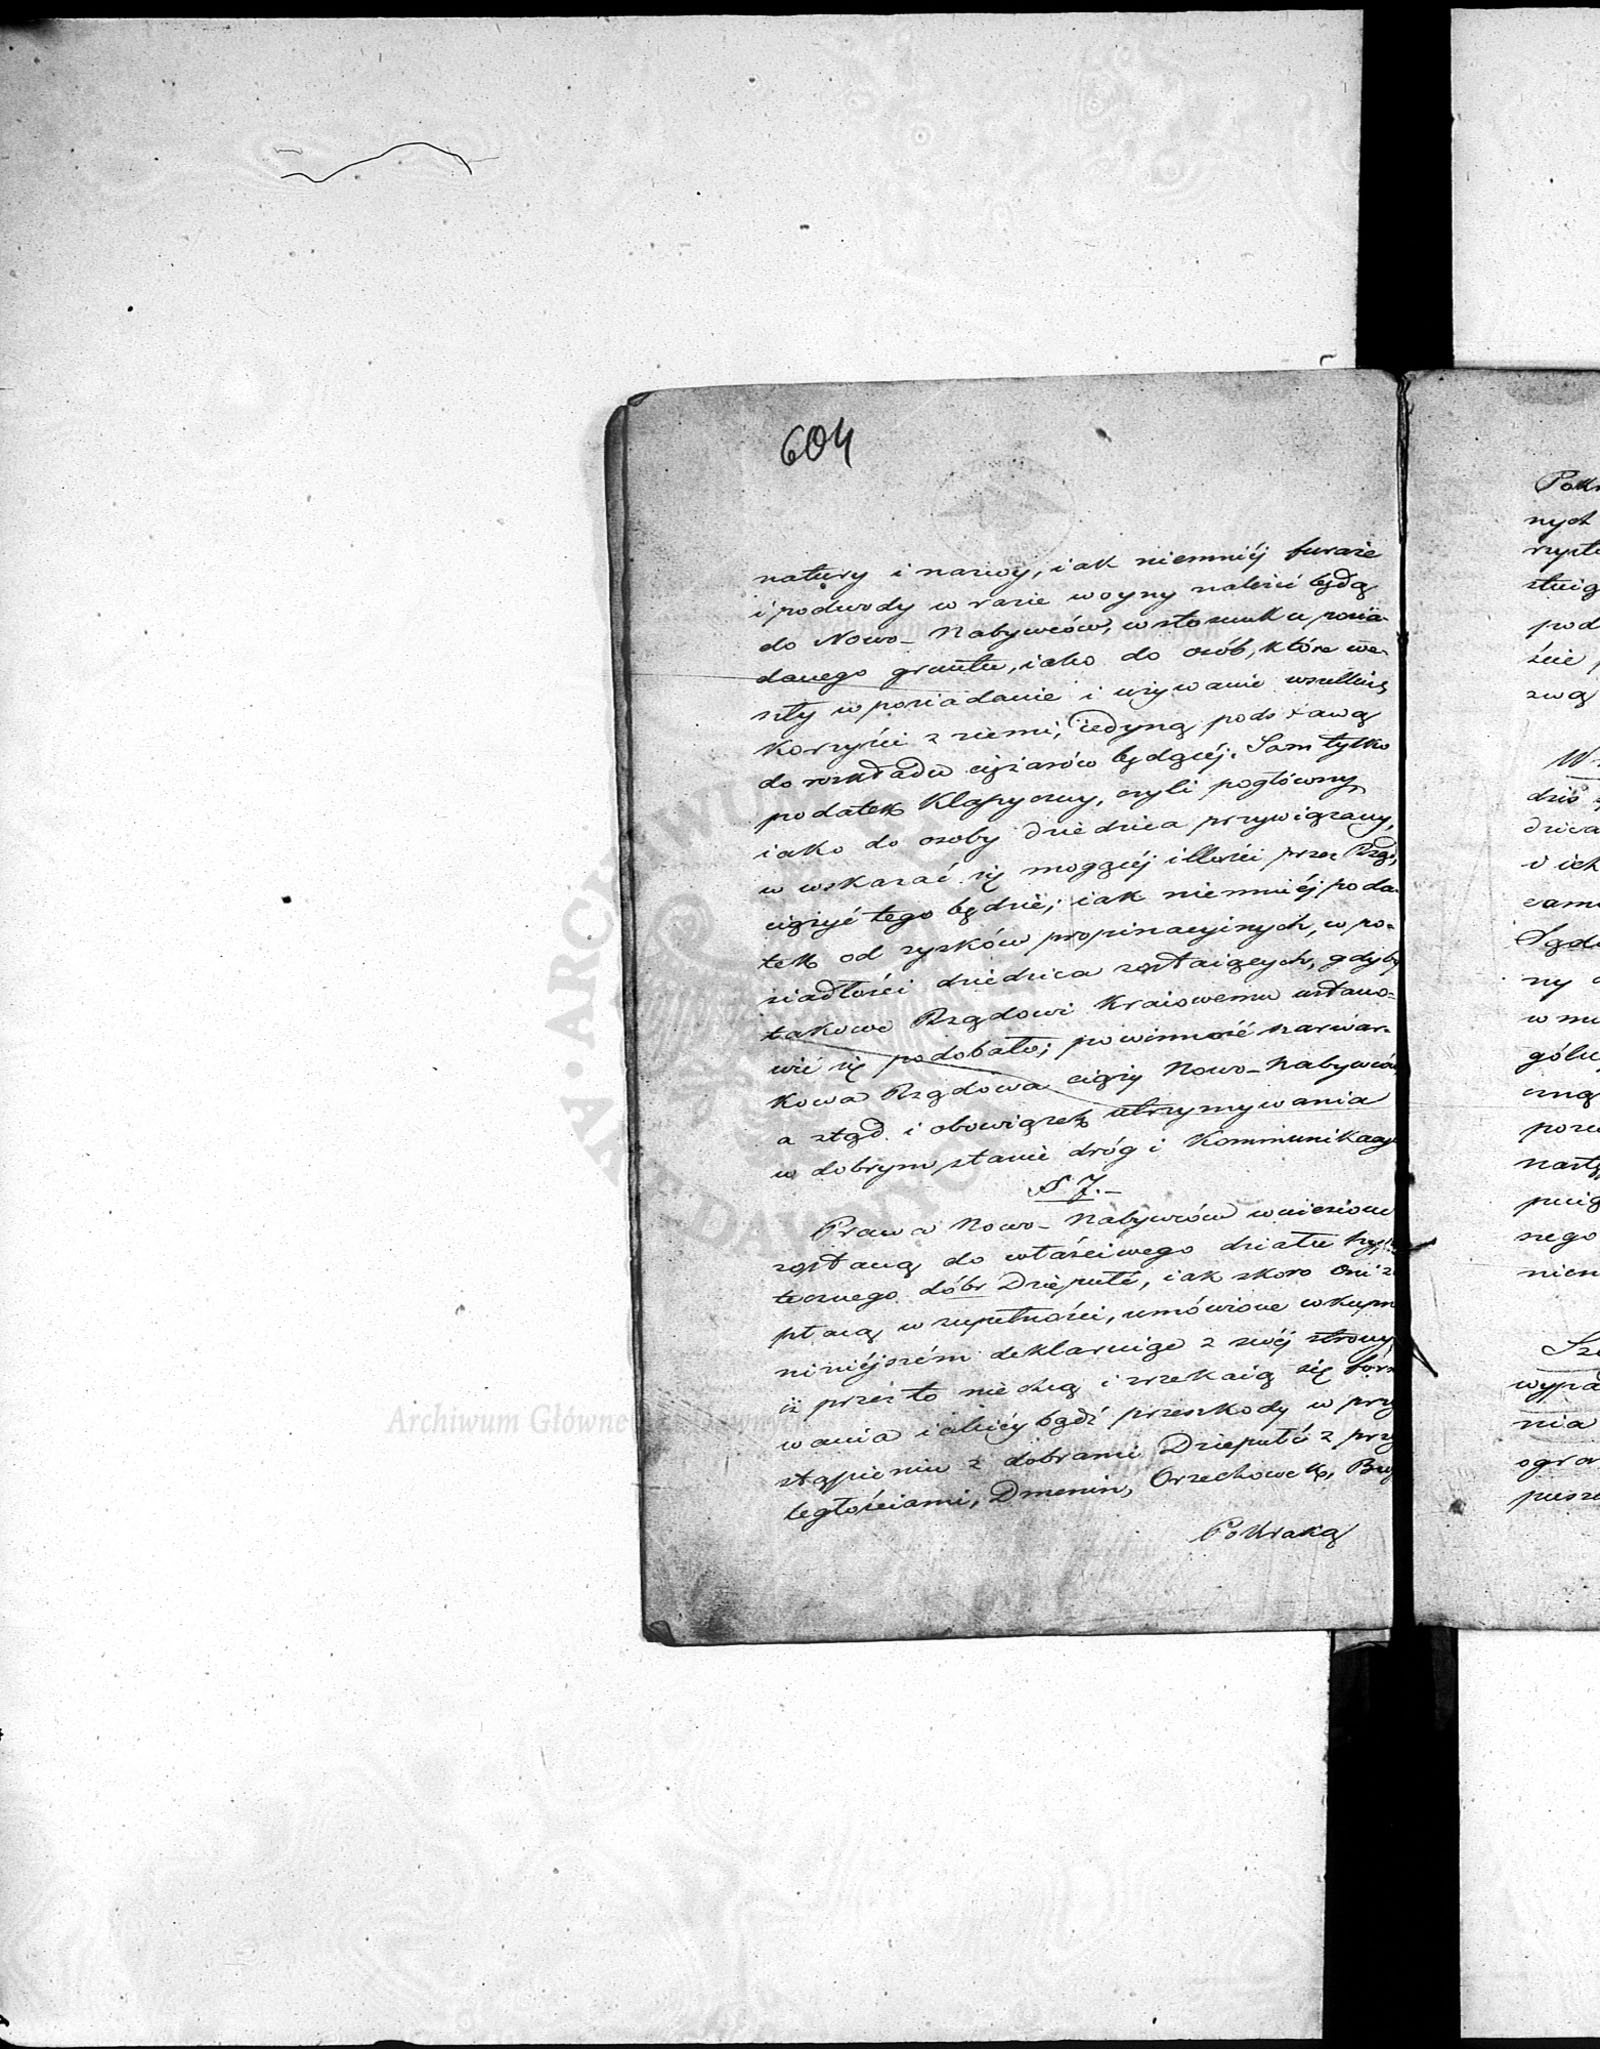 604
natury i nazwy, iak niemniéj furaże
i podwody w razie woyny należéć będą
do Nowo-Nabywców, w stosunku posia-
danego gruntu, iako do osób, które we-
szły w posiadanie i używanie wszelkiéj
korzyści z ziemi, iedyną podstawą
do rozkładu ciężarów będącéj. Sam tylko
podatek Klasyczny, czyli pogłówny,
iako do osoby dziedzica przywiązany,
w wskazać się mogącéj illości przez Rząd,
ciążyć tego będzie; iak niemniéj poda-
tek od zysków propinacyinych, w po-
siadłości dziedzica zostaiących, gdyby
takowe Rządowi Kraiowemu ustano-
wić się podobało; powinność szarwar-
kowa Rządowa ciąży Nowo-Nabywców
a ztąd i obowiązek utrzymywania
w dobrym stanie dróg i Kommunikacyi
§ 7.-
Prawa Nowo-Nabywców wniesione
zostaną do właściwego działu hypo
tecznego dóbr Dziepułć, iak skoro oni za
płacą w zupełności, umówione wkupn
niniéjszém deklaruiąc z swéj strony,
iż przez to nie chcą i zrzekaią się form
wania iakiéy bądź przeszkody w przy
stąpieniu z dobrami Dziepułć z przy
ległościami, Dmenin, Orzechowek, Bug
Pokraką
Pokr
nych
rzyste
stuią
pod
ście
zwą
dziś
dzica
i ich
same
Sąd
ny
w mi
gólu
czną
pozu
nastę
puią
nego
nien
Sz
wypad
nia
ogra
puszc